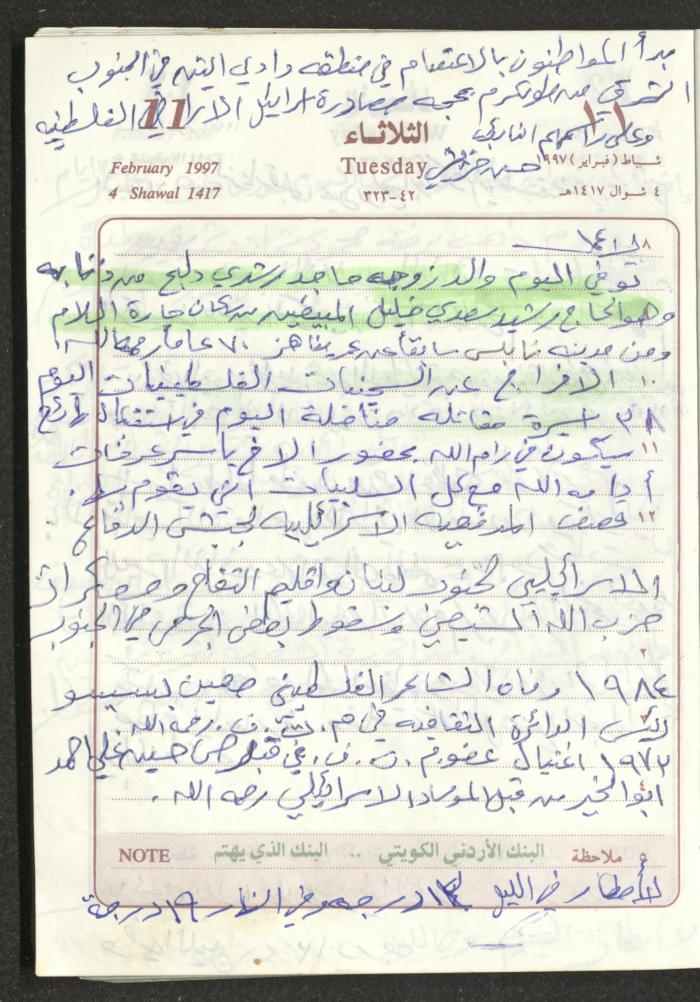 بدأ المواطنون بالاعتصام في منطقة وادي التين في الجنوب
الشرقي من طولكرم بحجة مصادرة اسرائيل الاراضي الفلسطينية
وعلى رأسهم النائب
حسن خريشة
11
الثلاثاء
February 1997
Tuesday
شباط (فبراير) ١٩٩٧
4 Shawal 1417
٤٢-٣٢٣
٤ شوال ١٤١٧هـ
٨
توفي اليوم والد زوجة ماجد رشدي دليح من دنابه
وهو الحاج رشيد سعدي خليل المبيضين من سكان حارة السلام
ومن مدينة نابلس سابقاً عن عمر يناهز ٧٠ عاماً رحمه الله
١٠ الافراج عن السجينات الفلسطينيات اليوم
٣٨ اسيرة مقاتلة مناضلة اليوم في استقبال رائع
١١ سيكون في رام الله بحضور الاخ ياسر عرفات
أدامه الله مع كل السلبيات التي يقوم بها.
١٢ قصف المدفعية الاسرائيلية لجيش الدفاع
الاسرائيلي لجنوب لبنان واقليم التفاح ومعسكرات
حزب الله الشيعي وسقوط بعض الجرحى في الجنوب
٢
١٩٨٤ وفاة الشاعر الفلسطيني معين بسيسو
رئيس الدائرة الثقافية في م.ت.ف. رحمه الله
١٩٧٣ اغتيال عضو م.ت.ف. في قبرص حسين علي احمد
ابو الخير من قبل الموساد الاسرائيلي رحمه الله.
NOTE
البنك الأردني الكويتي .. البنك الذي يهتم
٥ ملاحظة
الأمطار في الليل ١٢ درجة وفي النهار ١٩ درجة